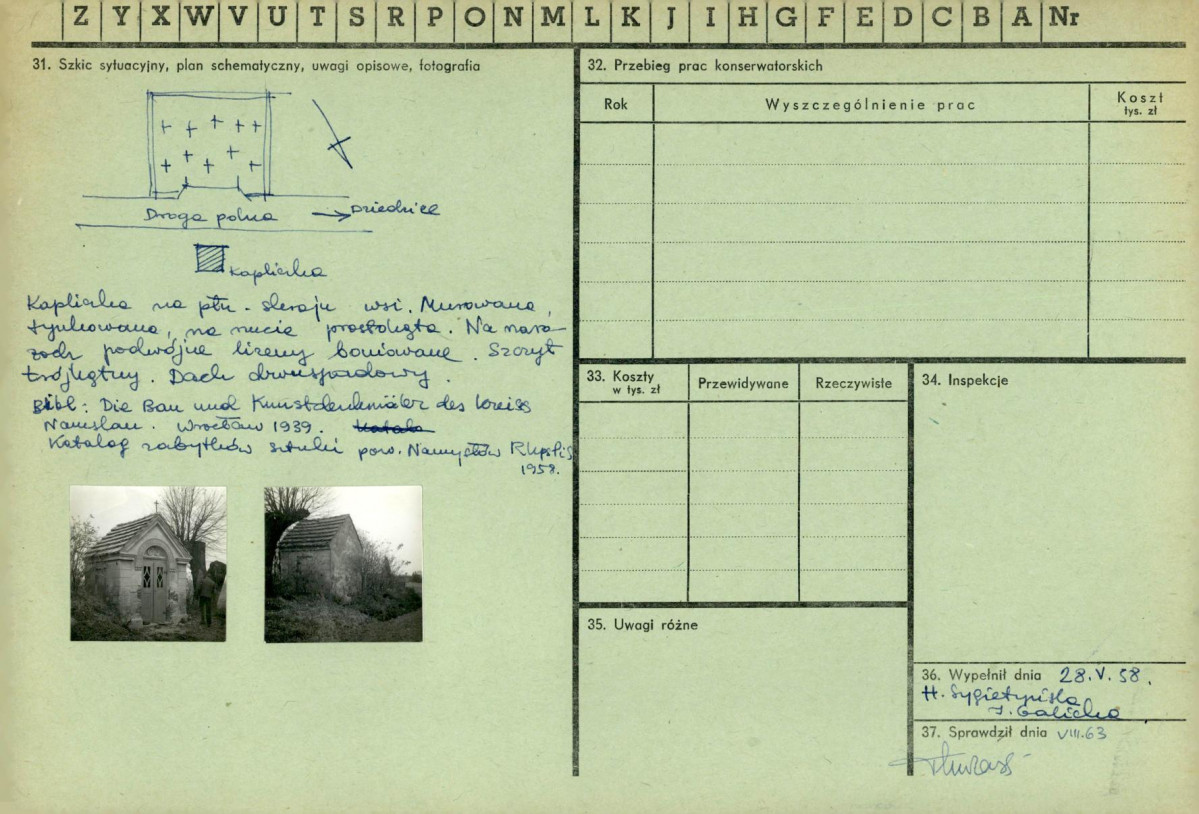 Z Y X W V U T S R P O N M L K J I H G F E D C B A Nr
31. Szkic sytuacyjny, plan schematyczny, uwagi opisowe, fotografia
Droga polna → Dziedzice
Kapliczka
Kapliczka na płn. skraju wsi. Murowana,
tynkowana, na rzucie prostokąta. Na naro-
żach podwójne lizeny boniowane. Szczyt
trójkątny. Dach dwuspadowy.
Bibl: Die Bau und Kunstdenkmäler des Kreiss
Namslau. Wrocław 1939.
Katalog zabytków sztuki pow. Namysłów
1958.
32. Przebieg prac konserwatorskich
Rok
Wyszczególnienie prac
Koszt
tys. zł
33. Koszty
w tys. zł
Przewidywane
Rzeczywiste
34. Inspekcje
35. Uwagi różne
36. Wypełnił dnia 28.V.58.
H. Sygietyńska
I. Galicka
37. Sprawdził dnia VIII.63